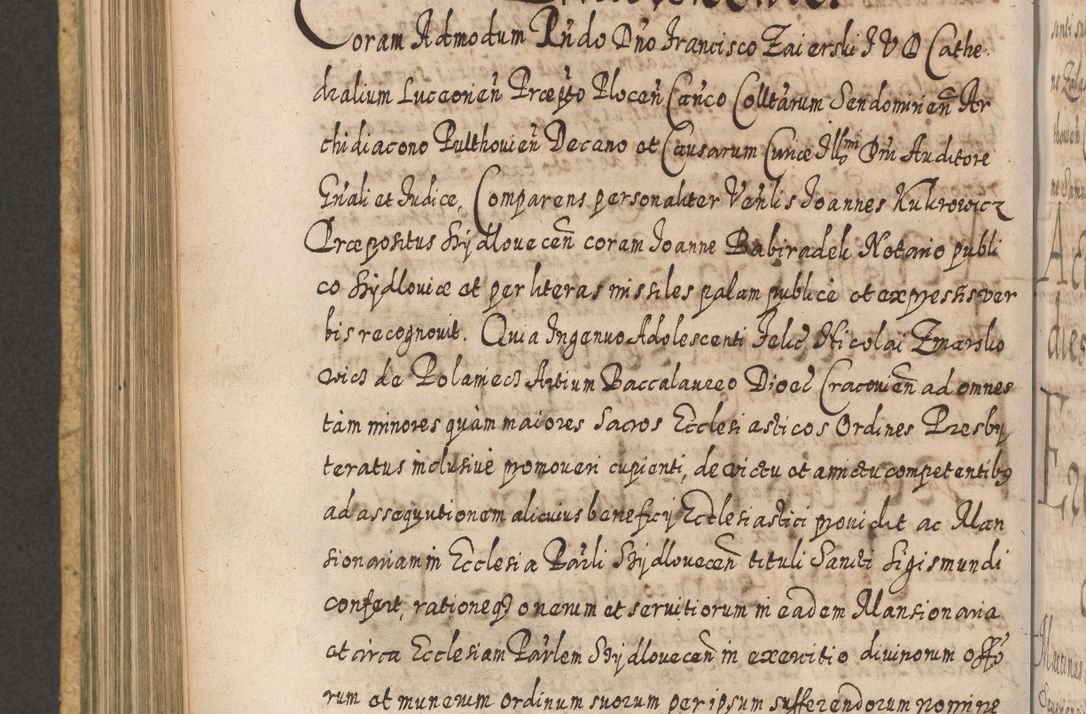 Coram Admodum Rn̄do Dn̄o Francisco Zaierski I V D Cathe
dralium Luceoneñ Præp̄to Ploceñ Cañco Colltārum Sendomirieñ Ar
chidiacono Pulthovieñ Decano et Causarum Curiæ Illmi Drn̄i Auditore
Gn̄ali et Iudice, Comparens personaliter Ven̄lis Joannes Kukrowicz
Præpositus Szydloveceñ coram Joanne Babiradeli Notario publi
co Szydloviæ et per literas missiles palam publicè et expressis ver
bis recognovit. Quia Ingenuo Adolescenti Felic Nicolai Zmarsko
wicz de Polaniecz Artium Baccalaureo Dioec Cracovieñ ad omnes
tàm minores quàm maiores Sacros Ecclesiasticos Ordines Presby
teratus inclusivè promoveri cupienti, de victu et amictu competentibq
ad assequutionem alicuius beneficij Ecclesiastici providit ac Man
sionariam in Ecclesia Pār̄li Szydloveceñ tituli Sancti Sigismundi
confert, rationeq onerum et servitiorum in eadem Mansionaria
et circa Ecclesiam Pār̄lem Szydloveceñ in exercitio divinorum offō
rum et munerum ordinum suorum per ipsum sufferendorum nomine